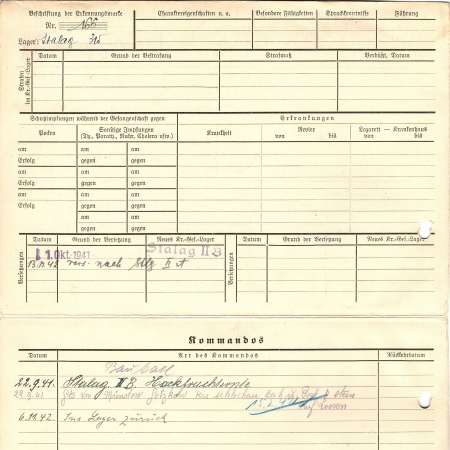 Beschriftung der Erkennungsmarke
Nr.
Lager: Stalag 315
Charaktereigenschaften u. a.
Besondere Fähigkeiten
Sprachkenntnisse
Führung
Strafen im Kr.-Gef.-Lager
Datum
Grund der Bestrafung
Strafmaß
Verbüßt, Datum
Schutzimpfungen während der Gefangenschaft gegen
Erkrankungen
Pocken
Sonstige Impfungen
(Ty., Paratyph., Ruhr, Cholera usw.)
Krankheit
Revier
von bis
Lazarett — Krankenhaus
von bis
am am am
Erfolg gegen gegen
am am am
Erfolg gegen gegen
am am am
Erfolg gegen gegen
am am
gegen gegen
Versetzungen
Datum
Grund der Versetzung
Neues Kr.-Gef.-Lager
Versetzungen
Datum
Grund der Versetzung
Neues Kr.-Gef.-Lager
1. Okt. 1941
Stalag II B
vers. nach Stlg II A
Kommandos
Datum
Art des Kommandos
Rückkehrdatum
22.9.41. Stalag II B, Hackfruchternte
29.9.41
6.11.42. Ins Lager zurück